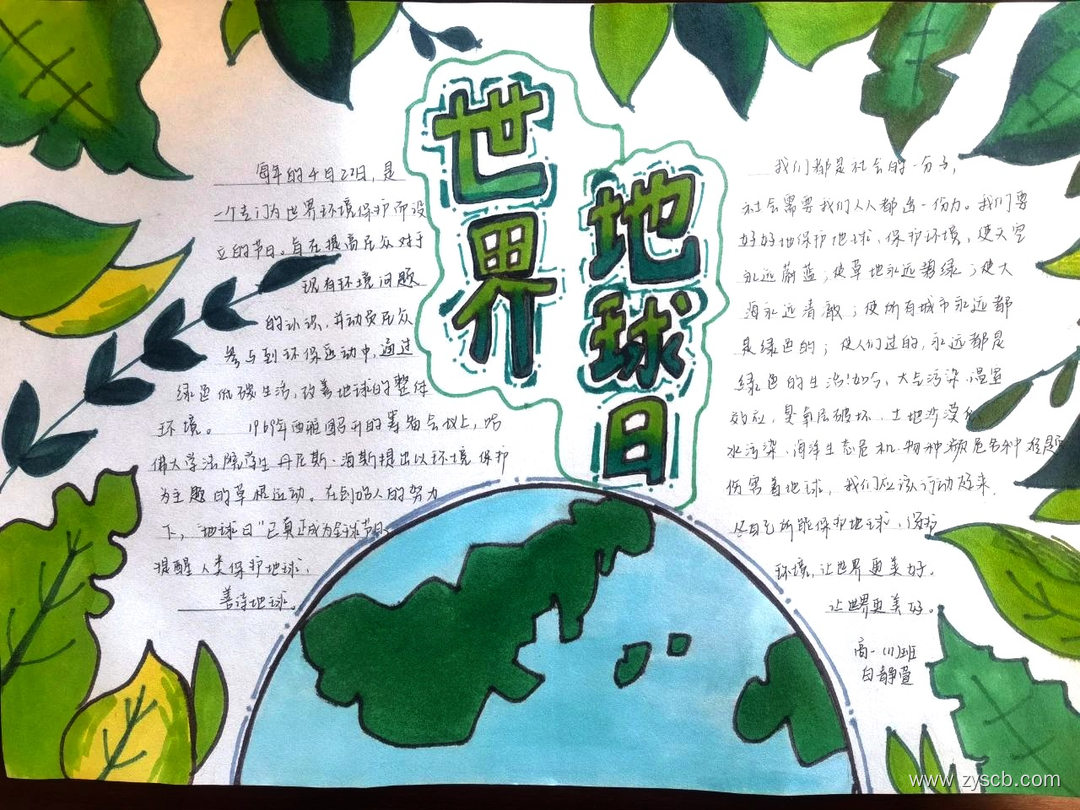 世界
地球日
每年的4月22日，是
一个专门为世界环境保护而设
立的节日。旨在提高民众对于
现有环境问题
的认识，并动员民众
参与到环保运动中，通过
绿色低碳生活，改善地球的整体
环境。 1969年西雅图召开的筹备会议上，哈
佛大学法院学生丹尼斯·海斯提出以环境保护
为主题的草根运动。在到场人的努力
下，“地球日”已真正成为全球节日，
提醒人类保护地球，
善待地球。
我们都是社会的一分子，
社会需要我们人人都出一份力。我们要
好好地保护地球、保护环境，使天空
永远蔚蓝；使草地永远碧绿；使大
海永远清澈；使所有城市永远都
是绿色的；使人们过的，永远都是
绿色的生活！如今，大气污染、温室
效应，臭氧层破坏、土地沙漠化
水污染、海洋生态危机、物种濒危各种难题
伤害着地球，我们应该行动起来，
尽自己所能保护地球、保护
环境，让世界更美好。
让世界更美好。
高一（1）班
白静萱
www.zyscb.com